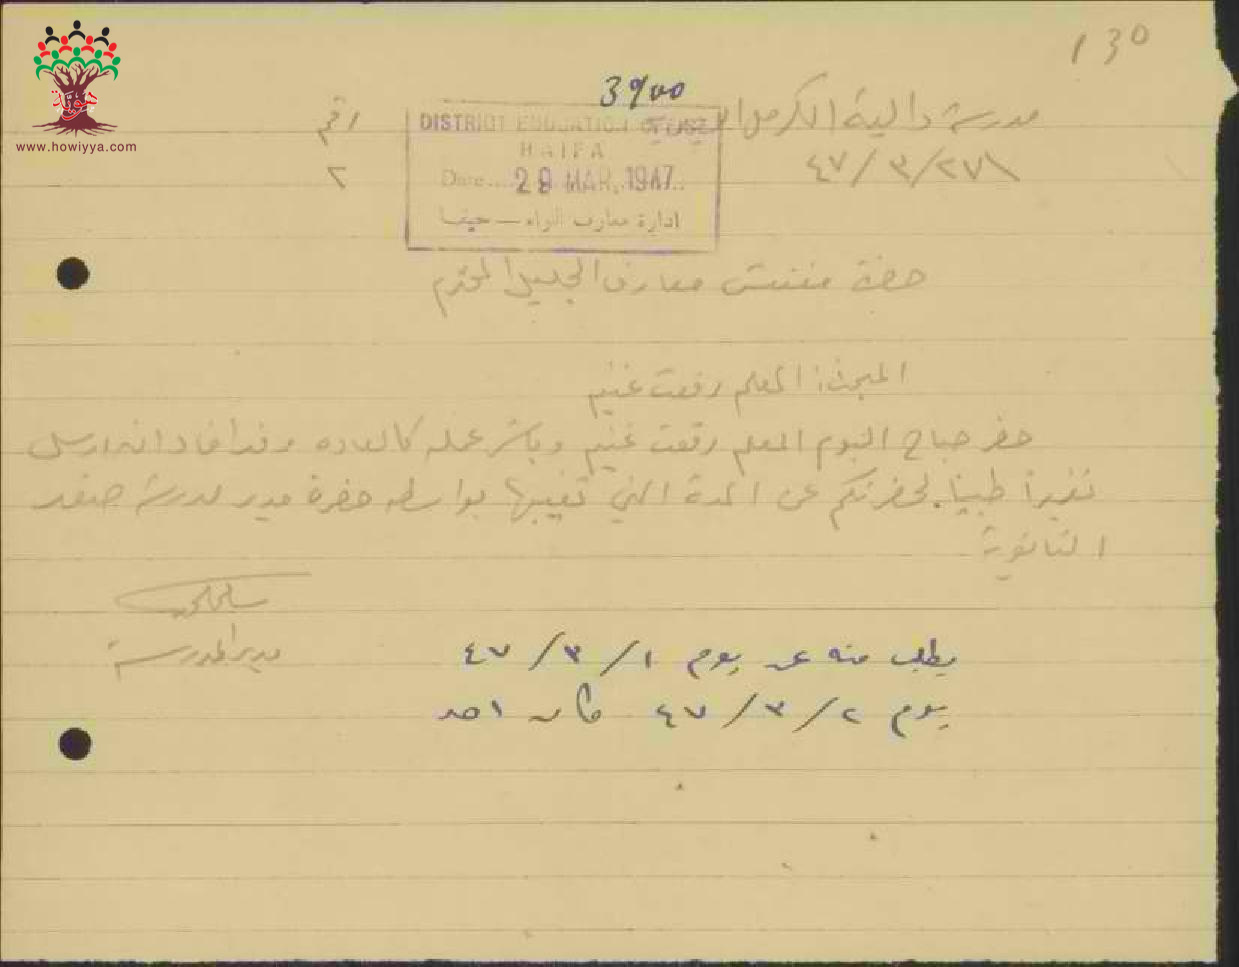 130
3900
مدرسة دالية الكرمل
رقم
٤٧/٣/٢٧
٢
DISTRICT EDUCATION OFFICE
HAIFA
Date.... 29 MAR. 1947..
ادارة معارف اللواء — حيفا
حضرة مفتش معارف الجليل المحترم
المبحث: المعلم رفعت غنيم
حضر صباح اليوم المعلم رفعت غنيم وباشر عمله كالعاده وقد افاد انه ارسل
تقريراً طبياً لحضرتكم عن المدة التي تغيبها بواسطه حضرة مدير مدرسة صفد
الثانوية
مدير المدرسة
يطلب منه عن يوم ٤٧/٣/١
يوم ٤٧/٣/٢ كان احد
هوية
www.howiyya.com